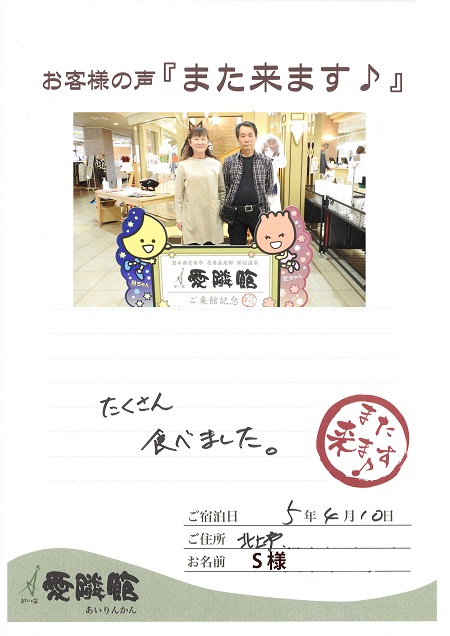 お客様の声『また来ます♪』
岩手県花巻市 花巻温泉郷 新鉛温泉
愛隣館
ご来館記念
たくさん
食べました。
また
来ます♪
ご宿泊日 5年4月10日
ご住所 北上市
お名前 S様
愛隣館
あいりんかん